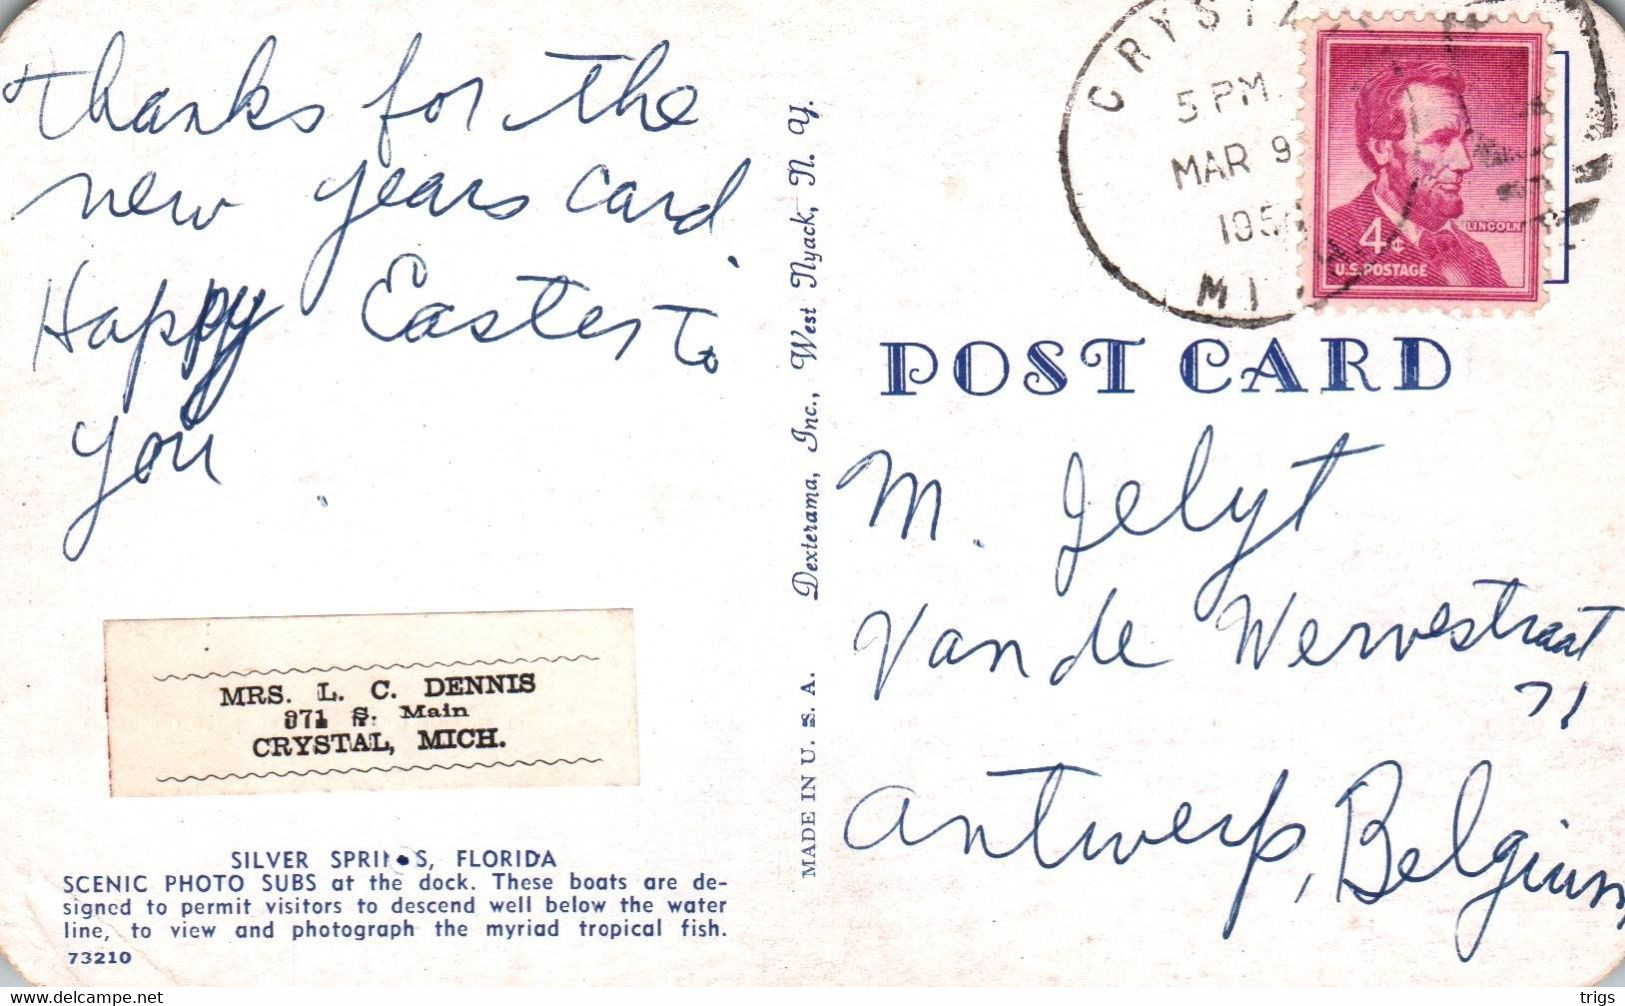 Thanks for the
new years card.
Happy Easter to
you
MRS. L. C. DENNIS
971 S. Main
CRYSTAL, MICH.
SILVER SPRINGS, FLORIDA
SCENIC PHOTO SUBS at the dock. These boats are de-
signed to permit visitors to descend well below the water
line, to view and photograph the myriad tropical fish.
73210
MADE IN U. S. A. Dexterama, Inc., West Nyack, N. Y.
CRYSTAL
5 PM
MAR 9
195
MI
4¢
LINCOLN
U.S. POSTAGE
POST CARD
M. Jelyt
Van de Wervestraat
71
Antwerp, Belgium
www.delcampe.net
trigs